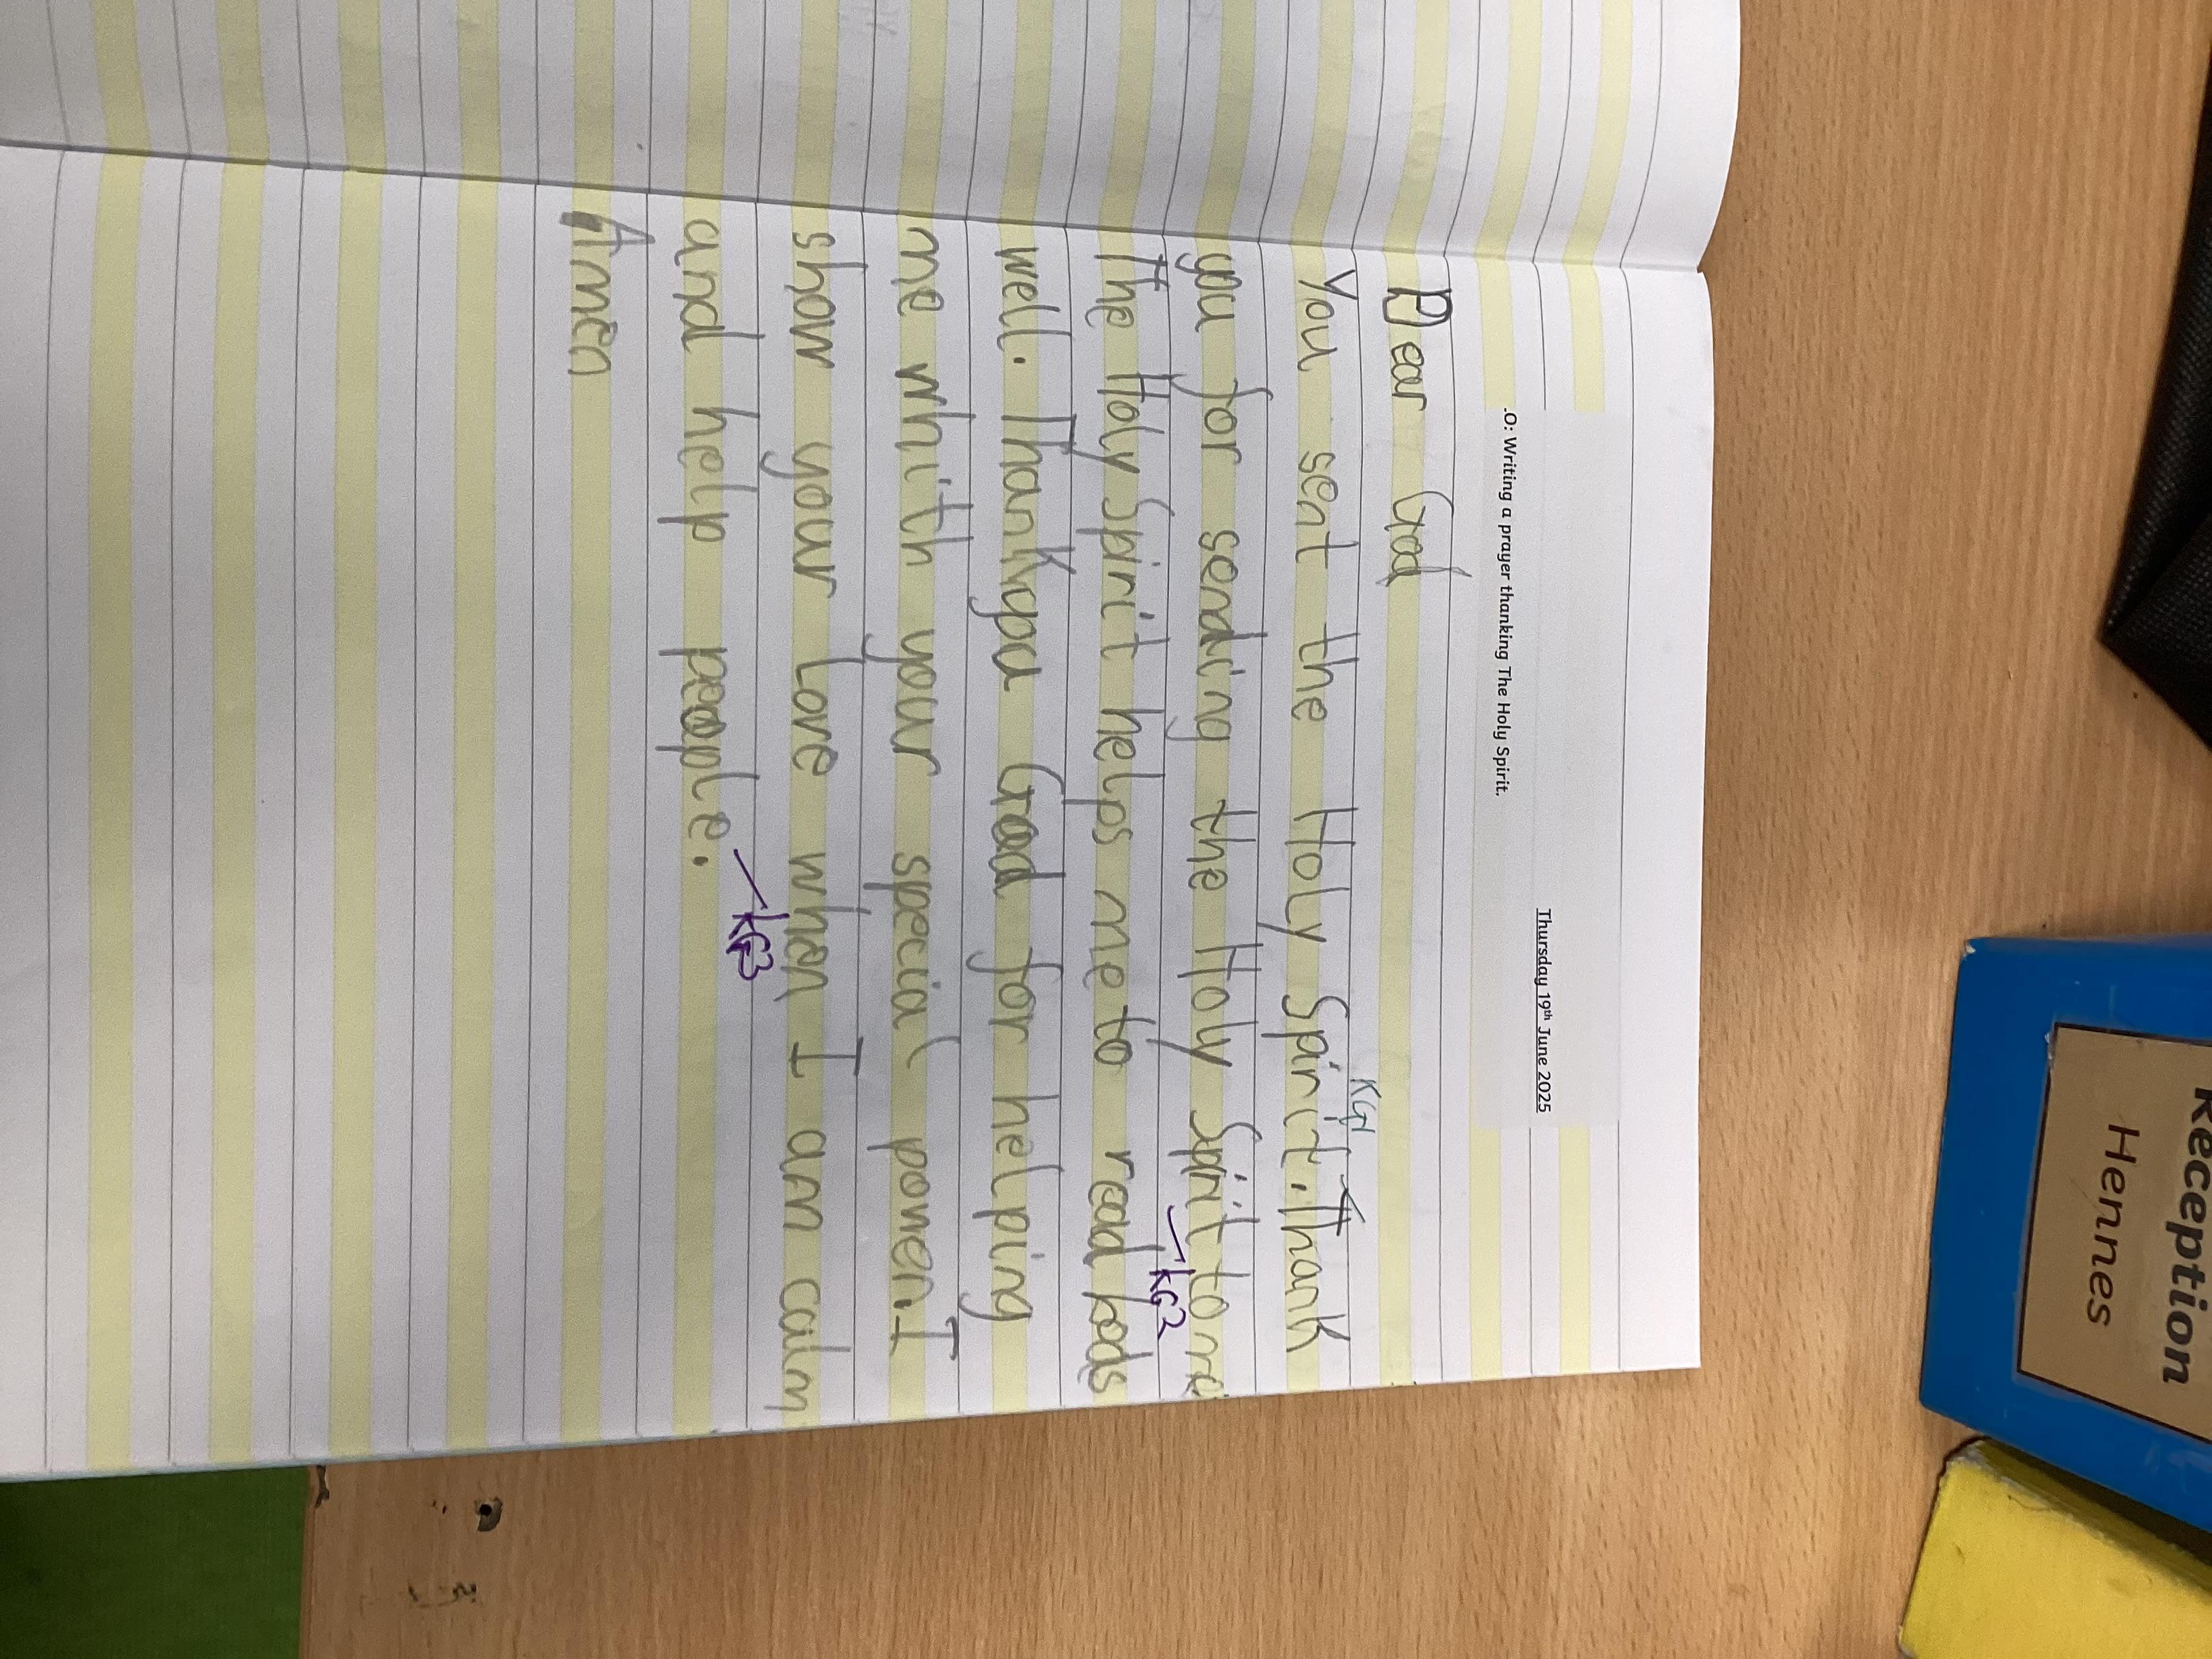 Thursday 19th June 2025
.O: Writing a prayer thanking The Holy Spirit.
Dear God
You sent the Holy Spirit. Thank
KG1
you for sending the Holy Spirit to me
KG2
The Holy Spirit helps me to read
well. Thankyou God for helping
me whith your special power. I
show your love when I am calm
and help people.
KG3
Amen
Reception
Hennes